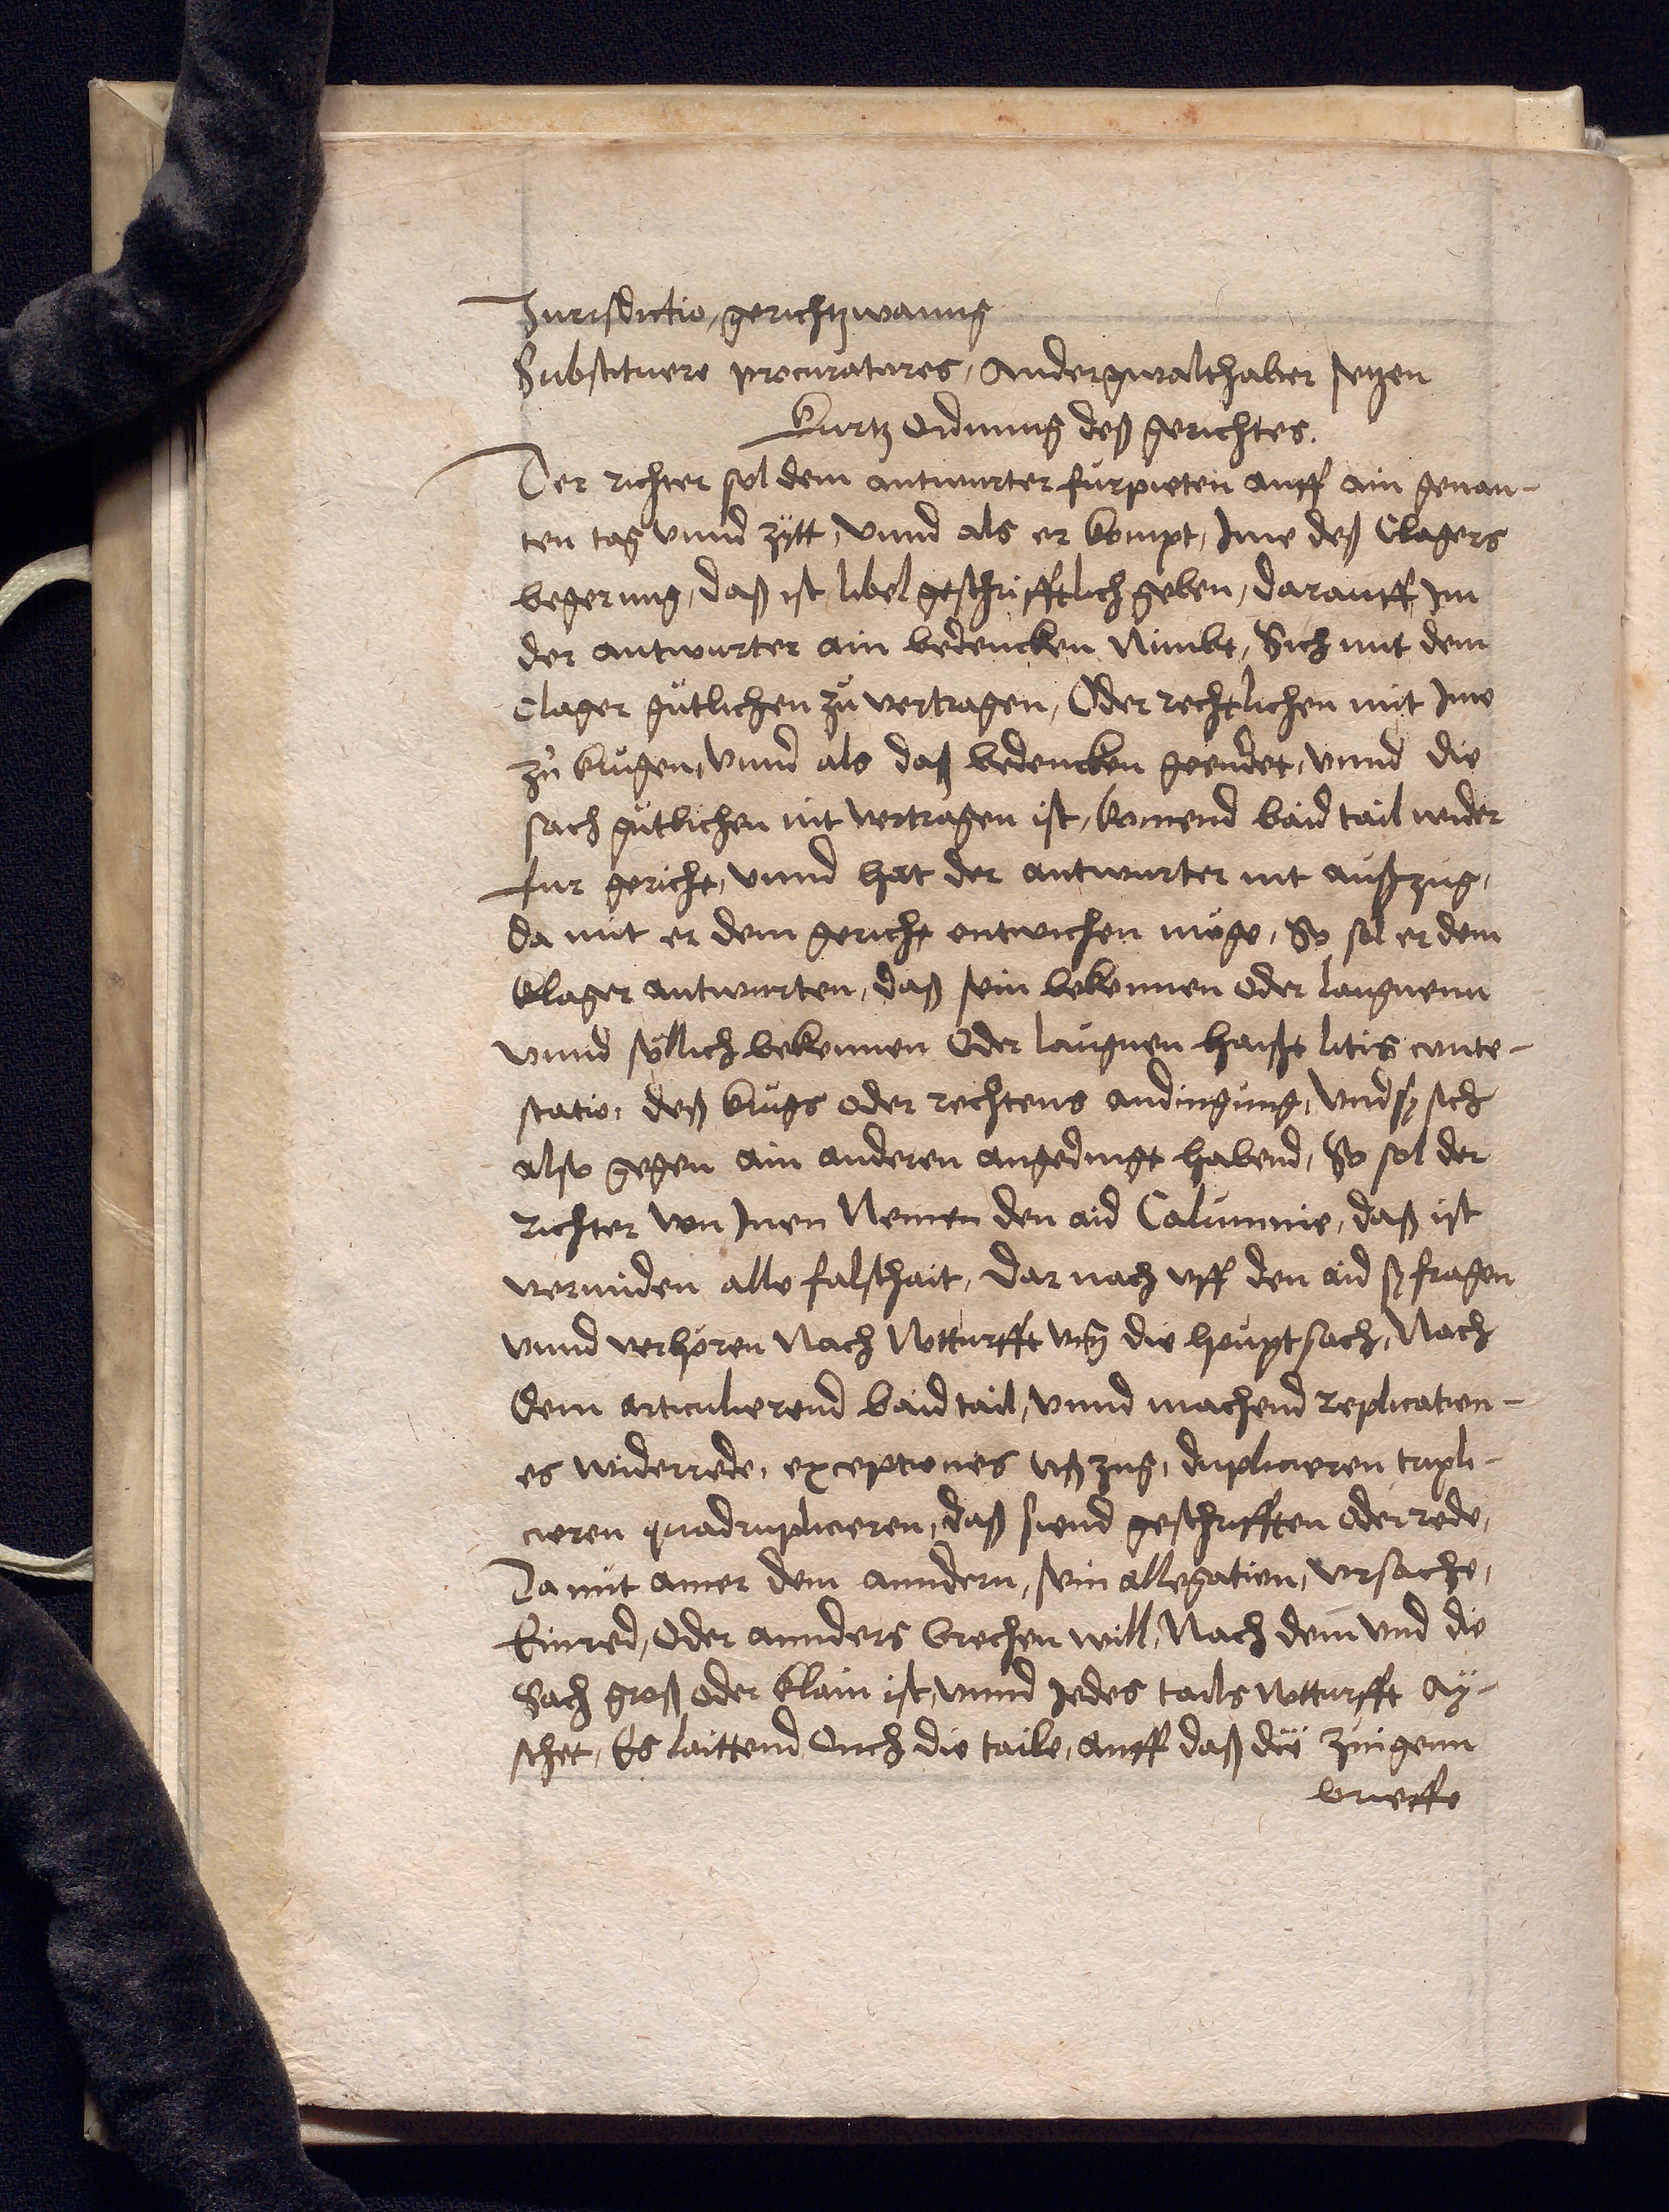 Jurisdictio, gerichtzwanng
Substituere procuratores, Andergwalthaber setzen
Kurtz ordnung deß gerichtes.
Der richter sol dem antwurter fürpieten auff ain genan-
ten tag vnnd zÿtt, Vnnd als er kompt, Jme deß Clagers
begerung, daß ist libel geschrifftlich geben, Darauff Jm
der antwurter ain bedencken Nimbt, Sich mit dem
Clager gütlichen zů vertragen, Oder rechtlichen mit Jme
zů kriegen, Vnnd als daß bedencken geendet, vnnd die
sach gütlichen nit vertragen ist, komend baid tail wider
fur gericht, vnnd hat der antwurter nit außzug,
da mit er dem gericht entwichen möge, So sol er dem
Clager antwurten, daß sein bekennen oder laugnenn
vnnd söllich bekennen Oder laugnen haißt litis conte-
statio, deß kriegs oder rechtens andingung, Vnd sy sich
also gegen ain anderen angedingt habend, So sol der
richter von Jnen Nemen den aid Calumnie, daß ist
vermiden alle falschait, Dar nach vff den aid sy fragen
vnnd verhören Nach Notturfft vm̃ die houptsach, Nach
dem articulierend baid tail, vnnd machend replication-
es widerrede, exceptiones vßzug, duplicieren tripli-
cieren quadruplicieren, daß siend geschrifften oder rede,
Da mit ainer dem anndern, sein allegation, vrsache,
Einred, oder annders brechen will, Nach dem vnd die
Sach groß oder klain ist, vnnd Jedes tails Notturfft Ay-
schet, Es laittend Ouch die taile, auff daß die zúigenn
brieffe